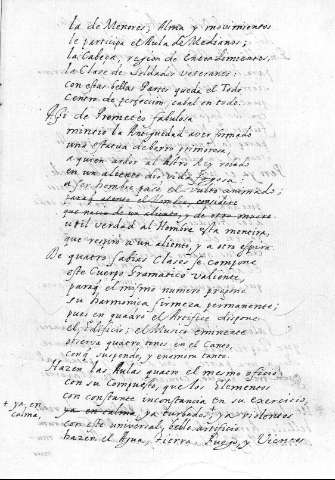 la de Menores; Alma, y movimientos
le participa el Aula de Medianos;
la Cabeza, region de Entendimientos,
la Clase de Soldados veteranos:
con estas bellas Partes queda el Todo
Centro de perfeccion, cabal en todo.
Assi de Prometeo fabulosa
mintió la Antiguedad aver formado
una estatua de barro primorosa,
a quien ardor al Astro Rey robado
en un aliento dio vida
a ser hombre pasó el bulto animado;
que nace de un aliento, y de otro muere
util verdad al Hombre esta mentira,
que respiró a un aliento, y a otro espira
De quatro sabias Clases se compone
este Cuerpo Gramatico valiente,
paraq el mismo numero
su harmonica firmeza permanente;
pues en quadro el Artifice dispone
el Edificio; el Musico eminente
observa quatro tonos en el Canto,
conq suspende, y enamora tanto.
Hazen las Aulas quatro el mismo oficio
con su Compuesto, que los Elementos
con constante inconstancia en su exercicio,
+ ya, en calma,
ya en calma, ya turbados, + ya violentos
con este universal, bello artificio
hazen el Agua, Tierra, Fuego, y Vientos